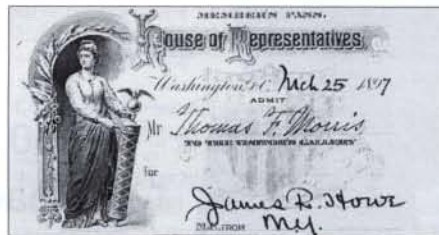 MEMBER'S PASS.
House of Representatives.
Washington, D.C. Mch 25 1897
ADMIT
Mr Thomas F. Morris
TO THE MEMBER'S GALLERY
for
James R. Howe
M.C. FROM N.Y.